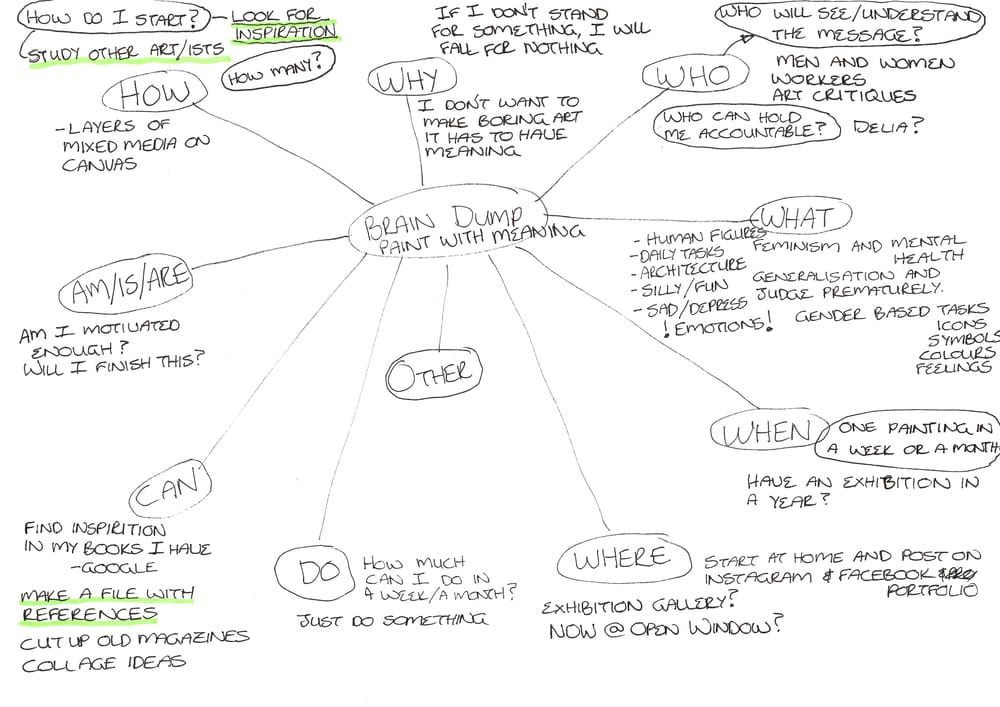 HOW DO I START? - LOOK FOR
INSPIRATION
STUDY OTHER ART/ISTS
HOW MANY?
HOW
- LAYERS OF
MIXED MEDIA ON
CANVAS
IF I DON'T STAND
FOR SOMETHING, I WILL
FALL FOR NOTHING
WHY
I DON'T WANT TO
MAKE BORING ART
IT HAS TO HAVE
MEANING
WHO WILL SEE/UNDERSTAND
THE MESSAGE?
WHO
MEN AND WOMEN
WORKERS
ART CRITIQUES
WHO CAN HOLD
ME ACCOUNTABLE?
DELIA?
BRAIN DUMP
PAINT WITH MEANING
WHAT
- HUMAN FIGURES
- DAILY TASKS
- ARCHITECTURE
- SILLY/FUN
- SAD/DEPRESS
! EMOTIONS!
FEMINISM AND MENTAL
HEALTH
GENERALISATION AND
JUDGE PREMATURELY.
GENDER BASED TASKS
ICONS
SYMBOLS
COLOURS
FEELINGS
AM/IS/ARE
AM I MOTIVATED
ENOUGH?
WILL I FINISH THIS?
OTHER
WHEN
ONE PAINTING IN
A WEEK OR A MONTH
HAVE AN EXHIBITION IN
A YEAR?
CAN
FIND INSPIRITION
IN MY BOOKS I HAVE
- GOOGLE
MAKE A FILE WITH
REFERENCES
CUT UP OLD MAGAZINES
COLLAGE IDEAS
DO
HOW MUCH
CAN I DO IN
A WEEK/A MONTH?
JUST DO SOMETHING
WHERE
START AT HOME AND POST ON
INSTAGRAM & FACEBOOK &
PORTFOLIO
EXHIBITION GALLERY?
NOW @ OPEN WINDOW?